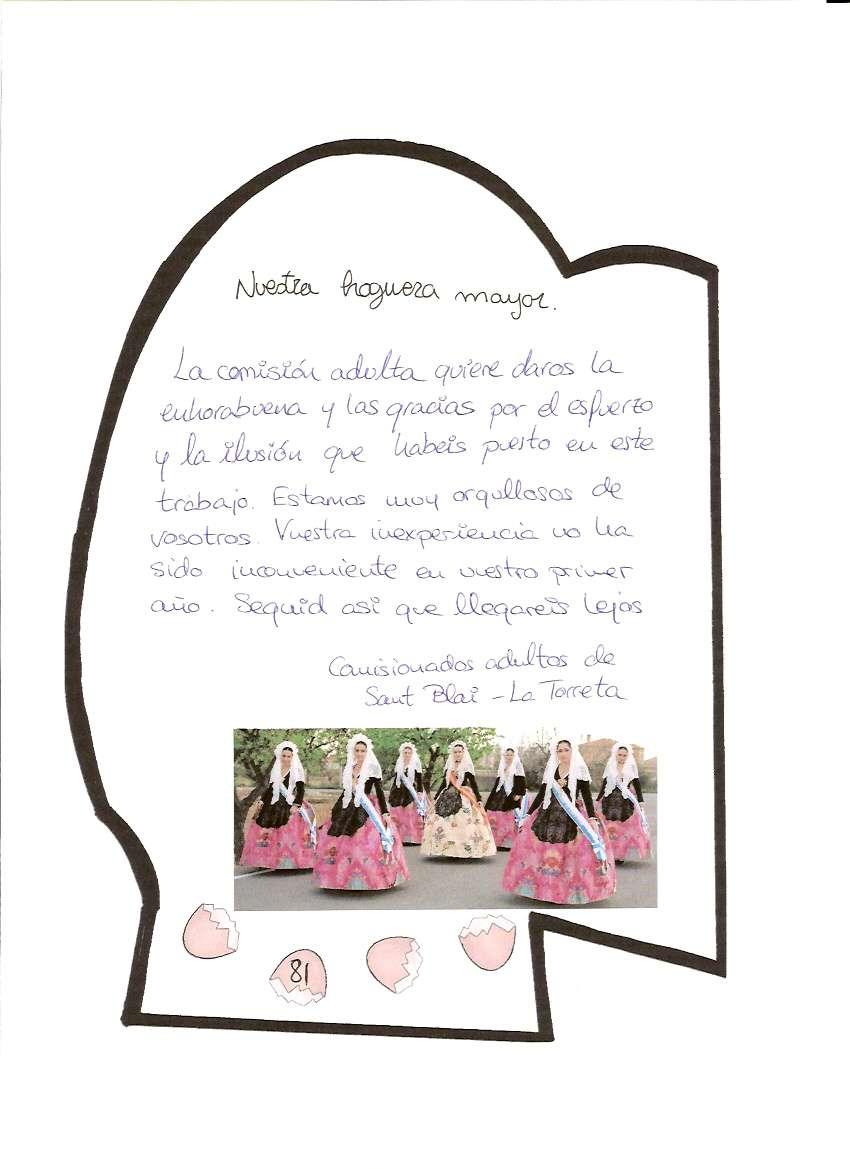 Nuestra hoguera mayor.
La comisión adulta quiere daros la
enhorabuena y las gracias por el esfuerzo
y la ilusión que habeis puesto en este
trabajo. Estamos muy orgullosos de
vosotros. Vuestra inexperiencia no ha
sido inconveniente en vuestro primer
año. Seguid asi que llegareis lejos
Comisionados adultos de
Sant Blai - La Torreta
81